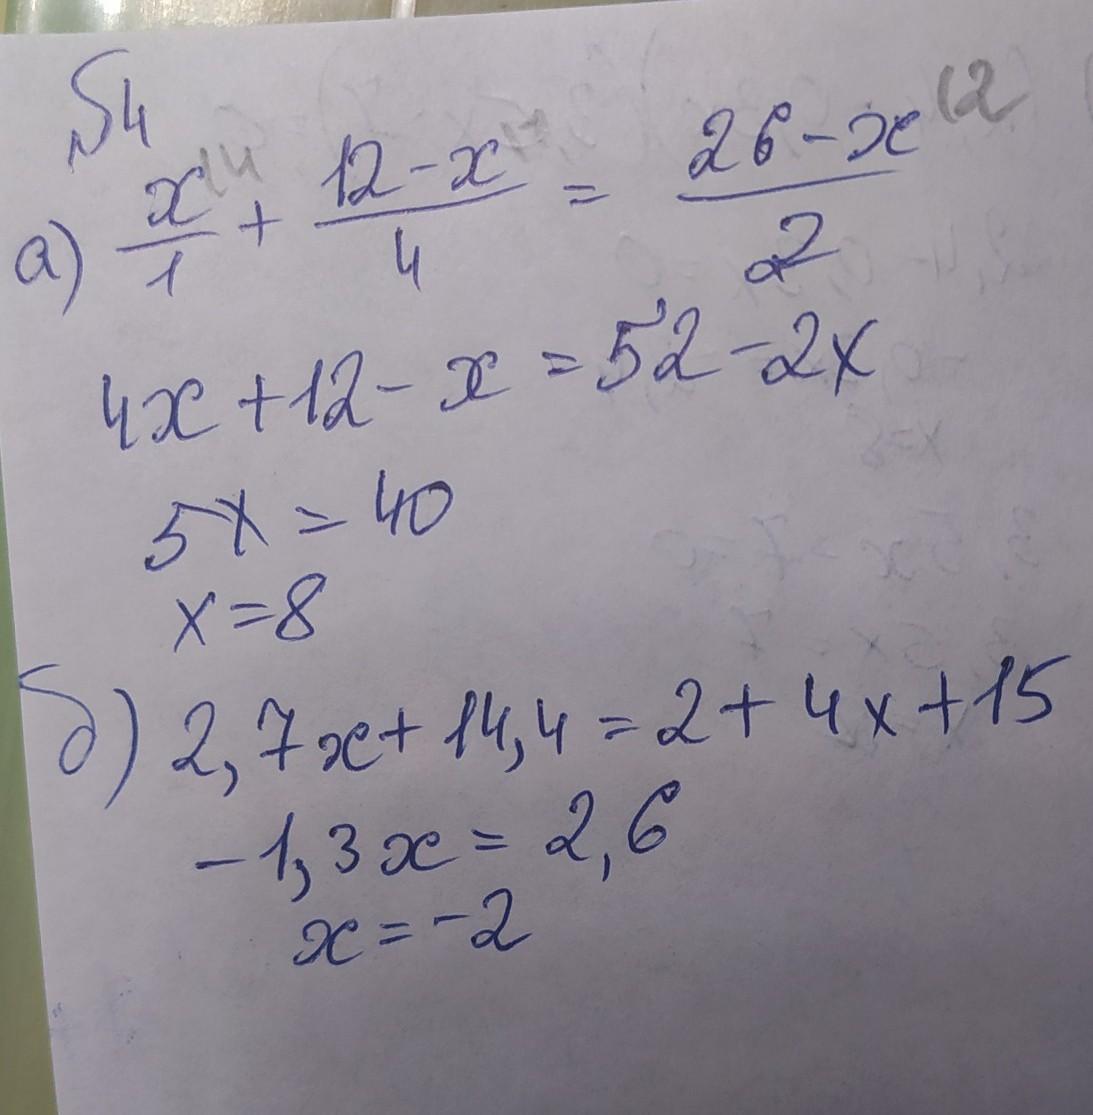 №4
а) x/1 + (12-x)/4 = (26-x)/2
4x+12-x=52-2x
5x=40
x=8
б) 2,7x+14,4=2+4x+15
-1,3x=2,6
x=-2